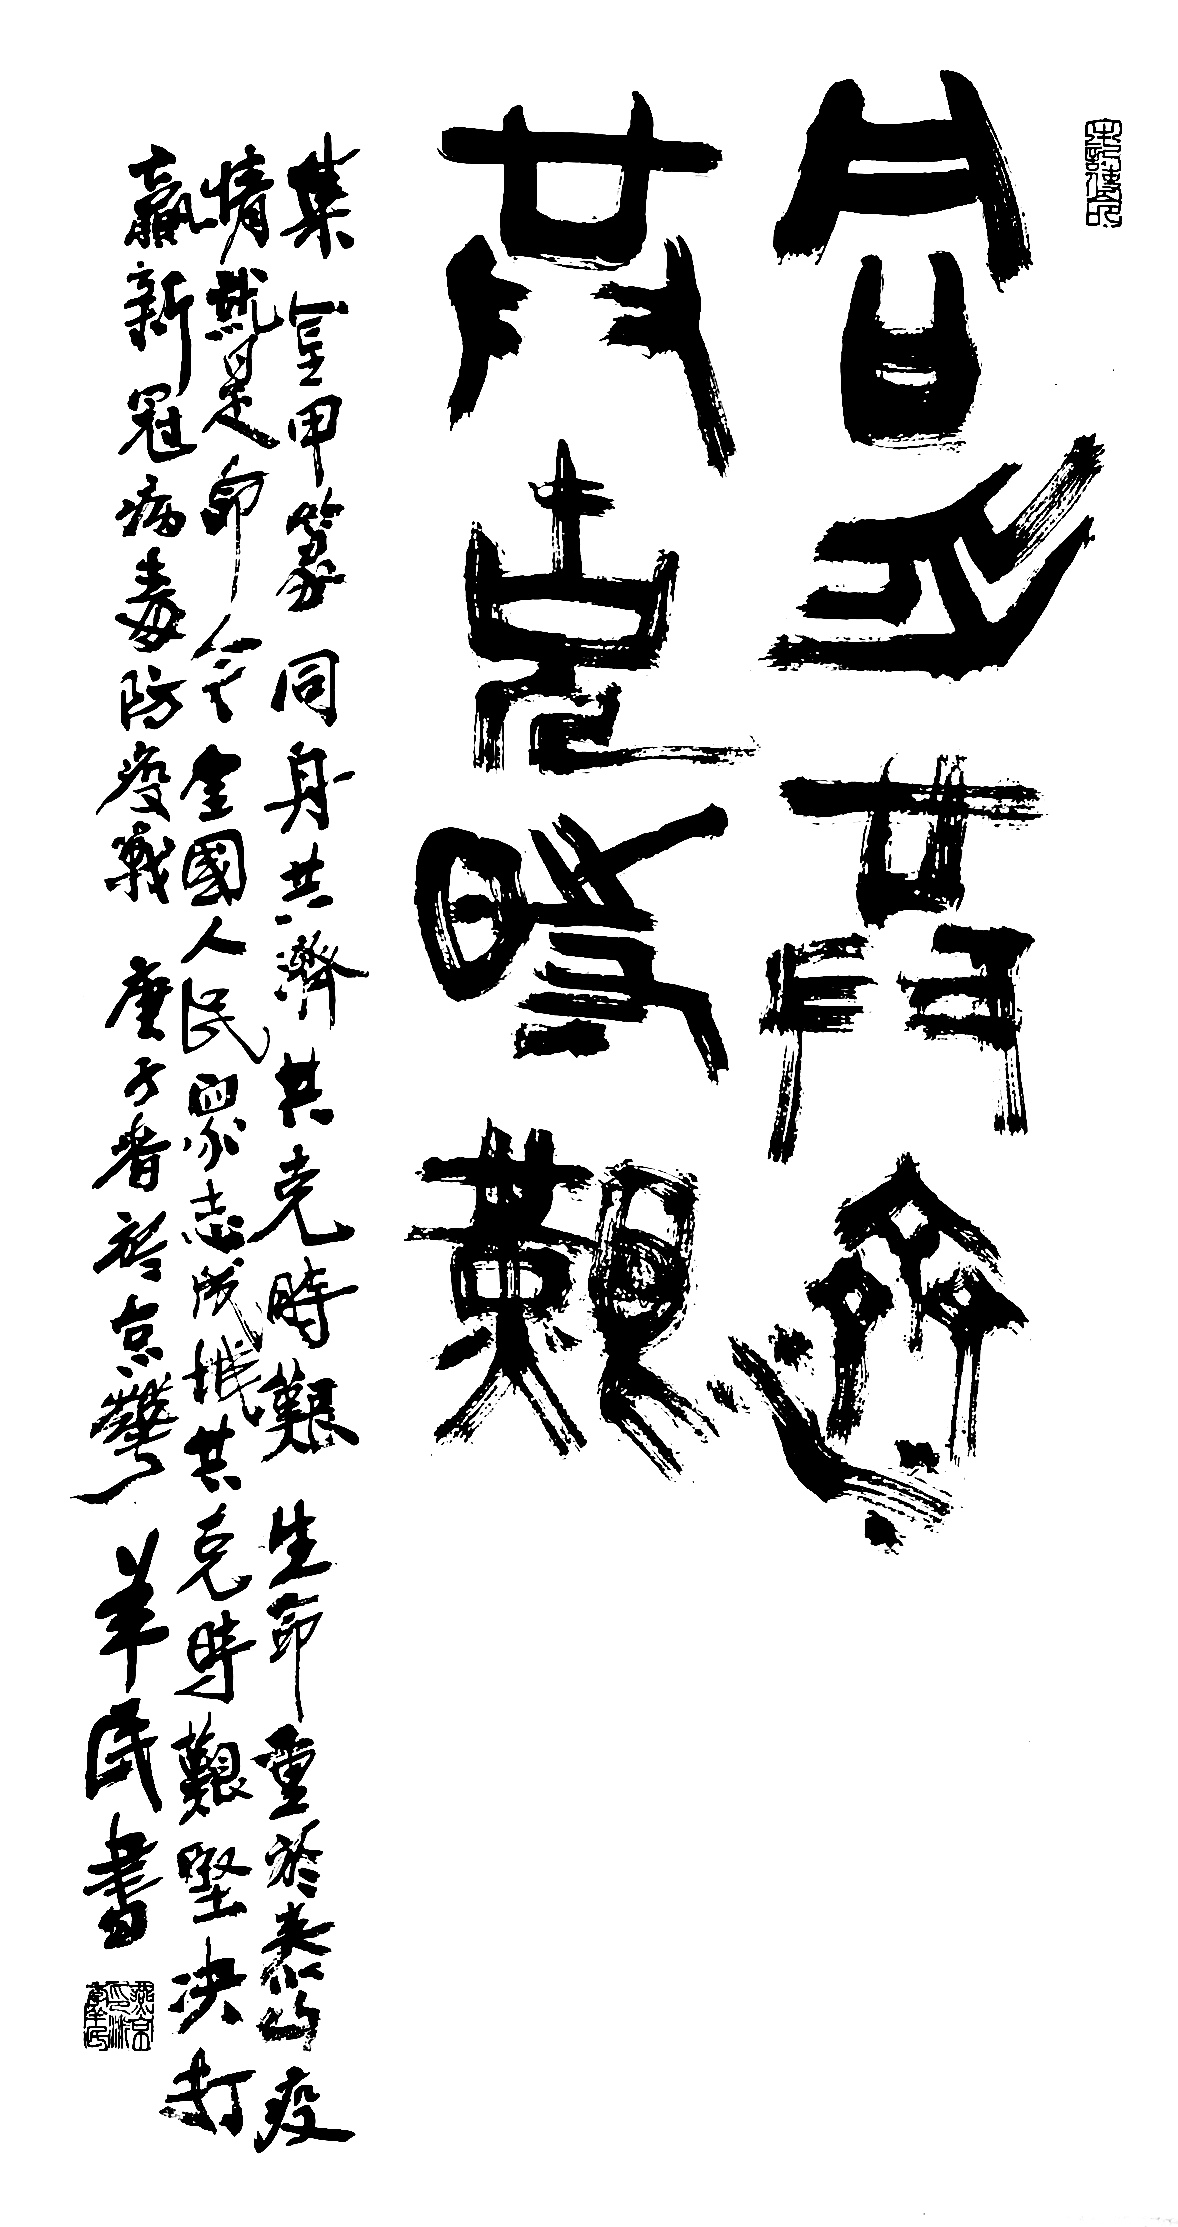 同舟共濟
共克時艱
集甲篆同舟共濟共克時艱生命重於泰山疫
情就是命令全國人民眾志成城共克時艱堅決打
贏新冠病毒防疫戰 庚子春於京華 羊民書